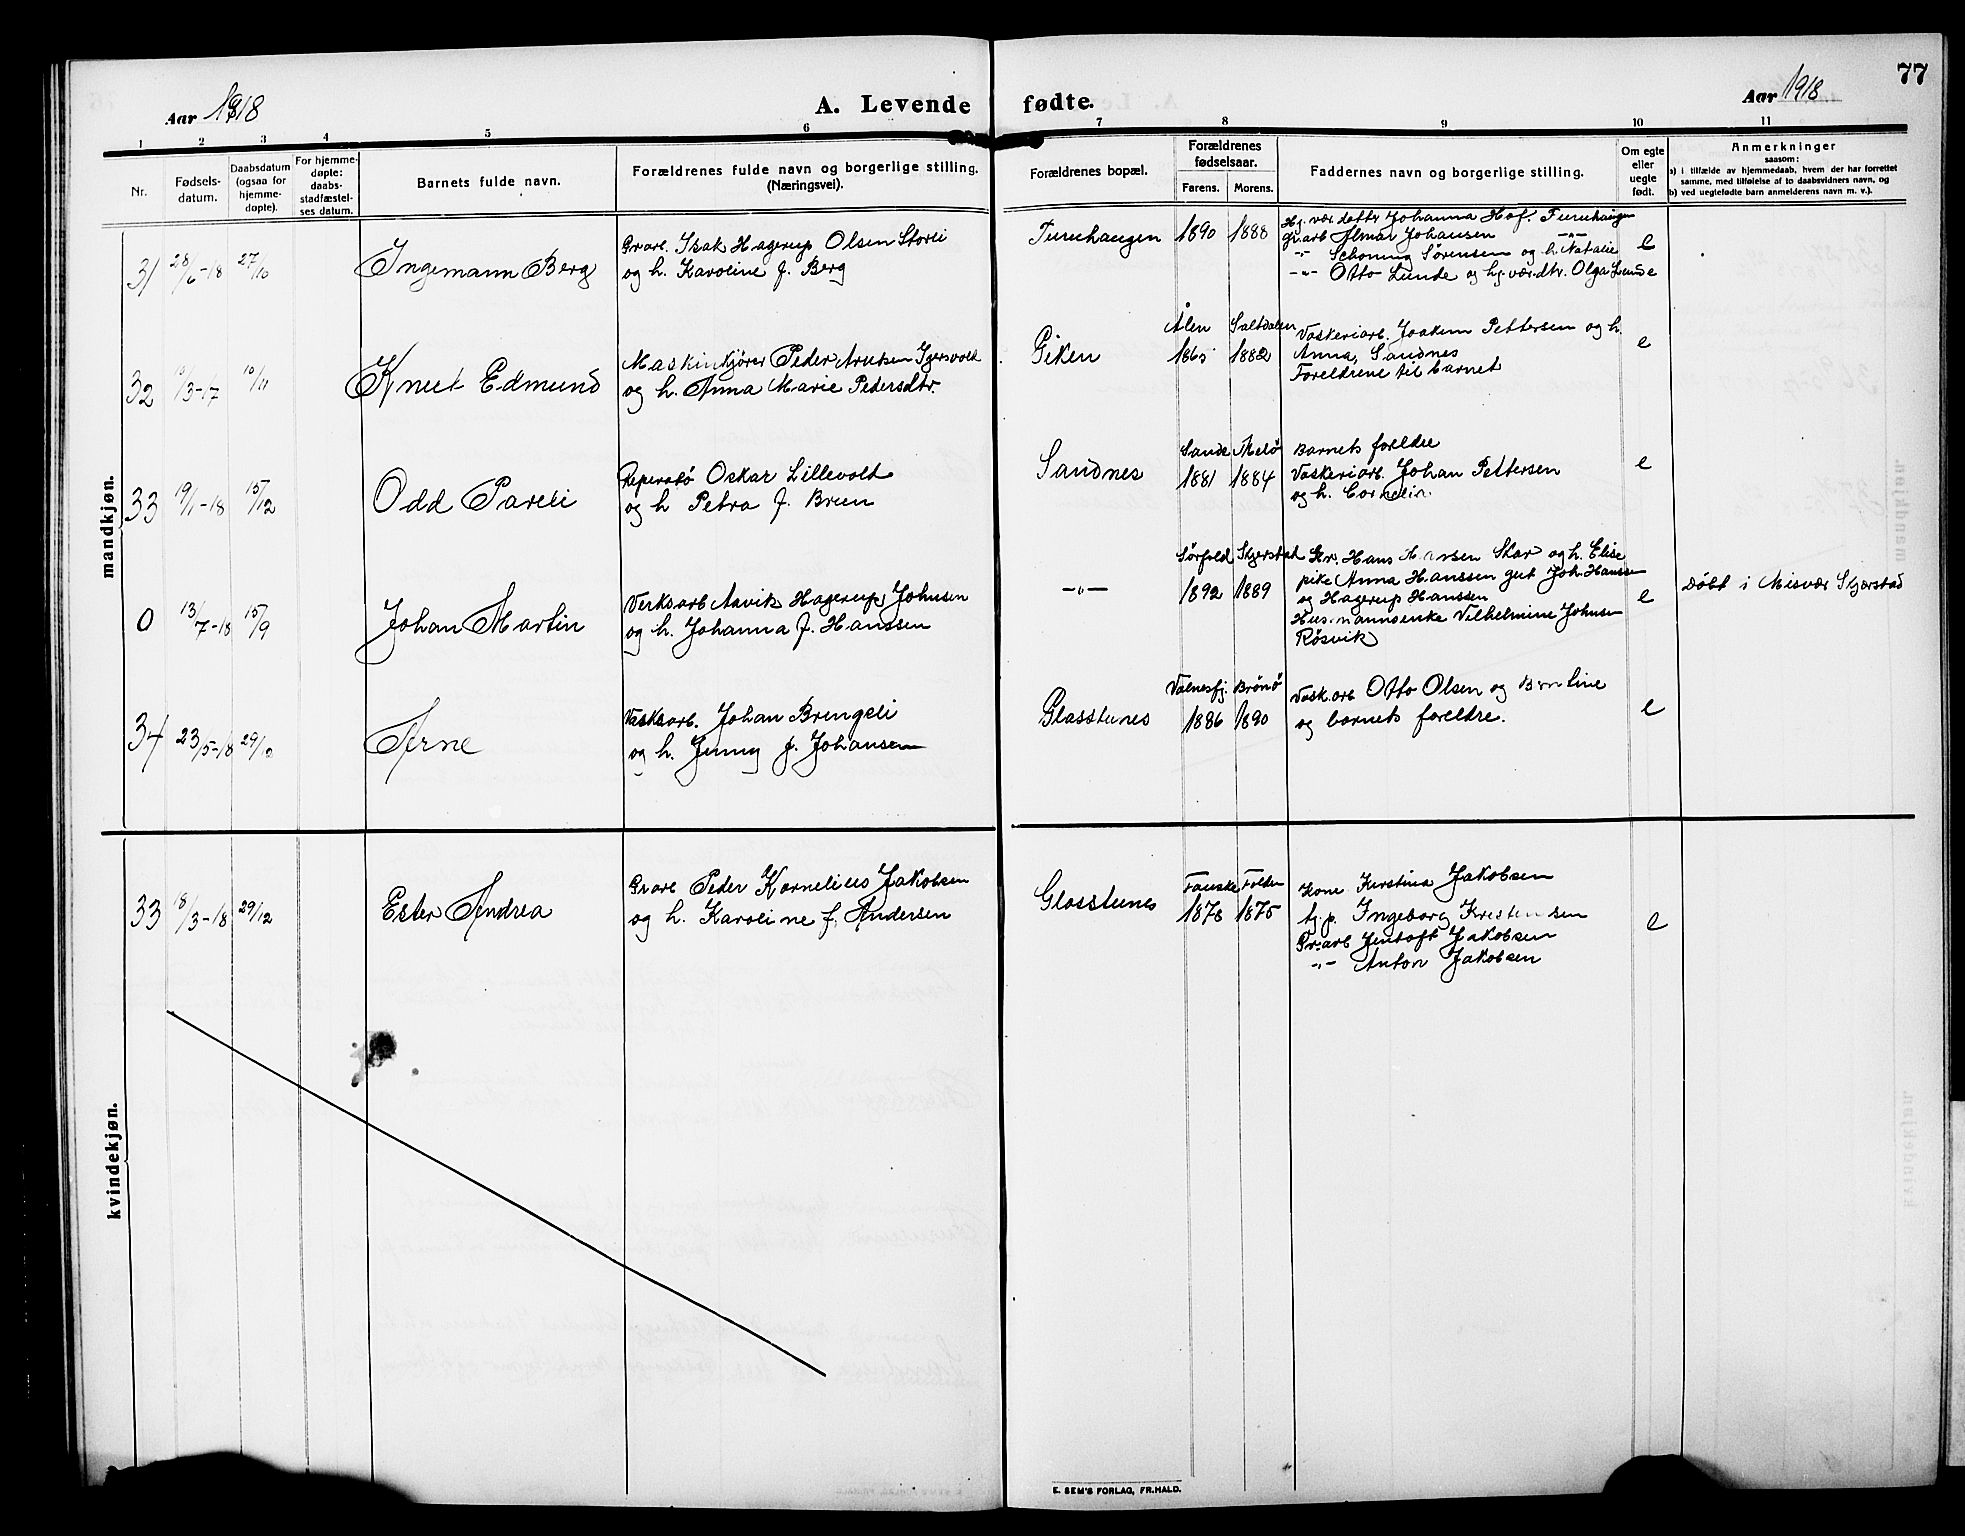 77
Aar 1918
A. Levende fødte.
Aar 1918
1 2 3 4 5 6 7 8 9 10 11
Nr.
Fødsels-
datum.
Daabsdatum
(ogsaa for
hjemme-
døpte).
For hjemme-
døpte:
daabs-
stadfæstel-
ses datum.
Barnets fulde navn.
Forældrenes fulde navn og borgerlige stilling.
(Næringsvei).
Forældrenes bopæl.
Forældrenes
fødselsaar.
Farens. Morens.
Faddernes navn og borgerlige stilling.
Om egte
eller
uegte
født.
Anmerkninger
saasom:
a) i tilfælde av hjemmedaab, hvem der har forrettet
samme, med tilføielse af to daabsvidners navn, og
b) ved uegtefødte barn anmelderens navn m. v.).
mandkjøn.
31 28/6-18 27/10 Ingemann Berg
Grarb. Isak Hagerup Olsen Storli
og h. Karoline f. Berg
Furuhaugen 1890 1888
Hj. vær. datter Johanna Hof. Furuhaugen
Grarb Almar Johansen -"-
-"- Schoning Sørensen og h. Natalie
-"- Otto Lunde og hj. vær. dtr. Olga Lunde
e
32 /3-17 10/11 Knut Edmund
Maskinkjører Peder
og h. Anna Marie Pedersdtr.
Giken
Ålen Saltdalen
1865 1882
Vaskeriarb. Joakim Pettersen og h.
Anna, Sandnes
Foreldrene til barnet
e
33 19/1-18 15/12 Odd Pareli
Reperatø Oskar Lillevolt
og h Petra f. Breen
Sandnes
Sande Melö
1881 1884
Barnets foreldre
Vaskeriarb. Johan Pettersen
og h. Cornelia.
e
0 13/7-18 15/9 Johan Martin
Verksarb Aavik Hagerup Johnsen
og h. Johanna f. Hanssen
-"-
Sørfold Skjerstad
1892 1889
Gr. Hans Hansen Skar og h. Elise
pike Anna Hanssen gut Joh. Hanssen
og Hagerup Hanssen
Husmannsenke Vilhelmine Johnsen
Røsvik
e
Døbt i Misvær Skjerstad
34 23/5-18 29/12 Arne
Vaskarb. Johan Brengeli
og h. Jenny f. Johansen
Glasstunes
Valnesfj. Brönö
1886 1890
Vask.arb Otto Olsen og Berntine
og barnets foreldre.
e
kvindekjøn.
33 18/3-18 29/12 Ester Andrea
Grarb Peder Kornelius Jakobsen
og h. Karoline f. Andersen
Glasstunes
Fauske Folden
1878 1875
Kone Kirstina Jakobsen
tj. p. Ingeborg Kristensen
Gr.arb Jentoft Jakobsen
-"- Anton Jakobsen
e
E. SEM'S FORLAG, FR.HALD.